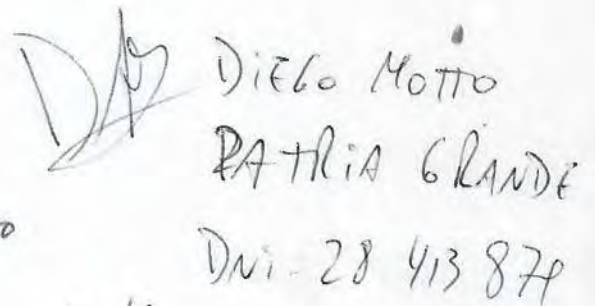 DiEGo MOTTO
PATRIA GRANDE
DNi. 28 413 879